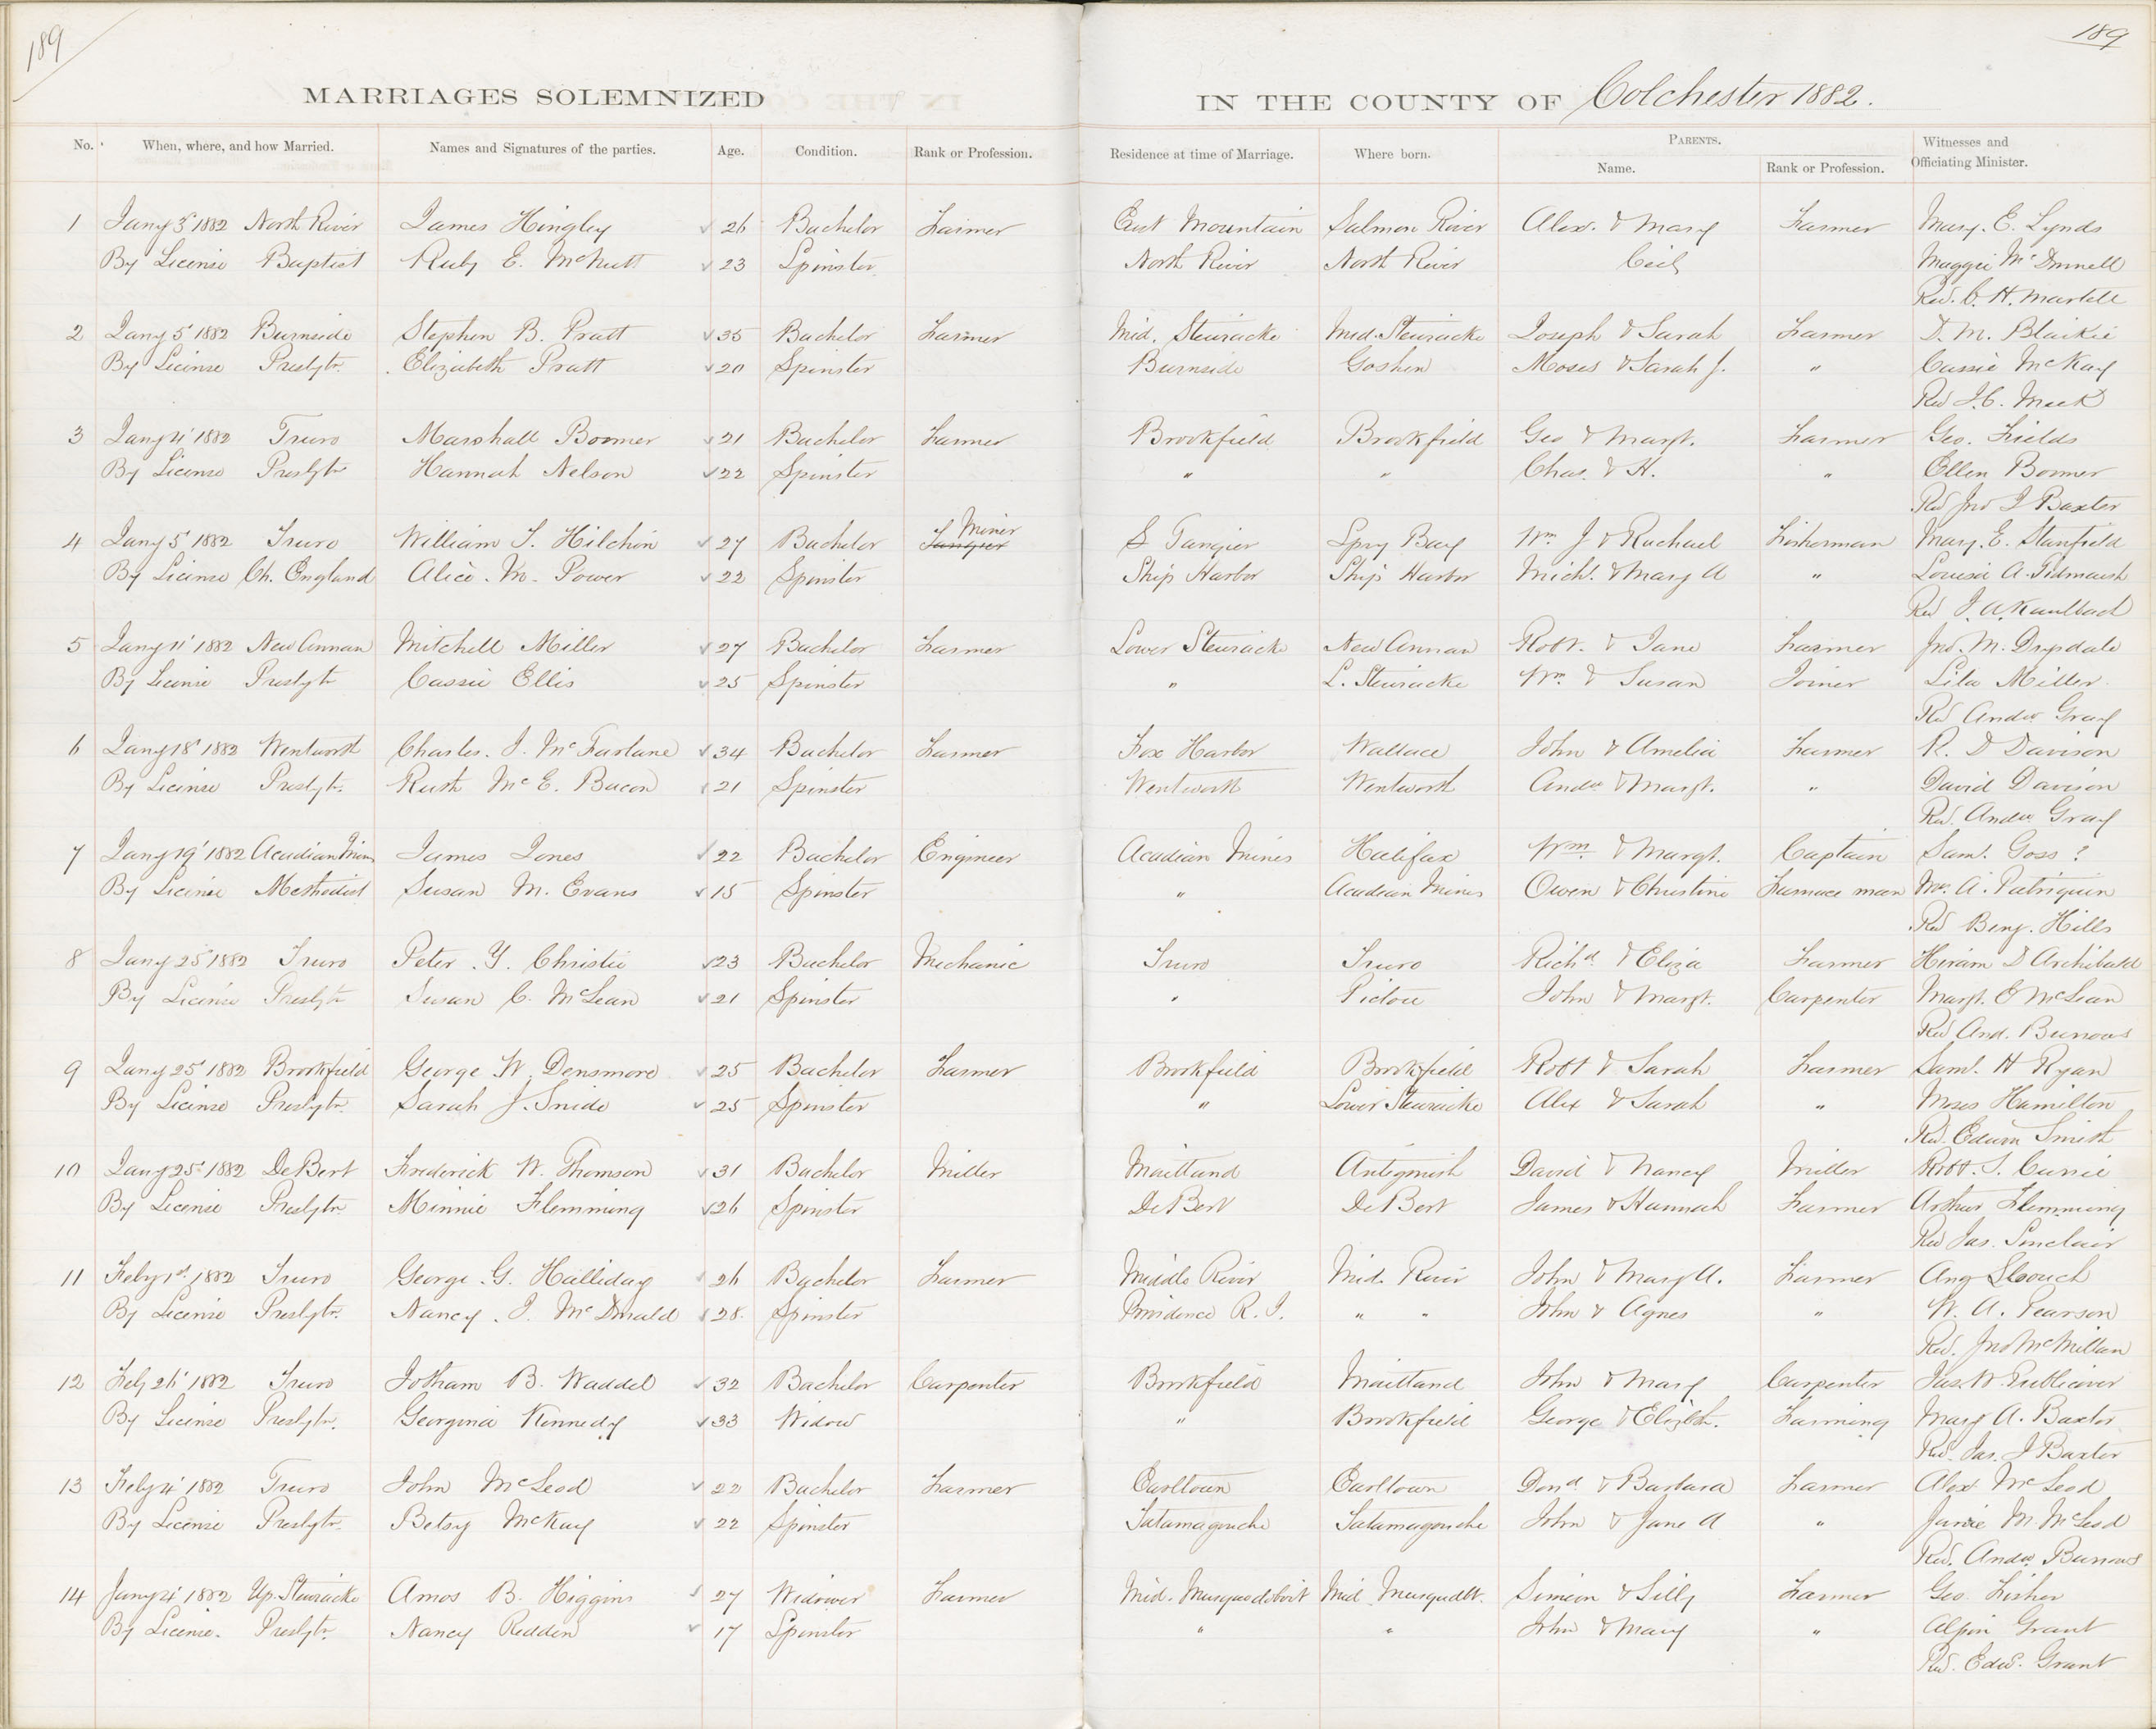 189
189
MARRIAGES SOLEMNIZED IN THE COUNTY OF Colchester 1882.
No. When, where, and how Married. Names and Signatures of the parties. Age. Condition. Rank or Profession. Residence at time of Marriage. Where born. PARENTS. Name. Rank or Profession. Witnesses and Officiating Minister.
1 Jany 3 1882 North River James Hingley 26 Bachelor Farmer East Mountain Salmon River Alex. & Mary Farmer Mary. E. Lynds
By License Baptist Ruby E. McNutt 23 Spinster North River North River Maggie McDonnell
Rev. C. H. Martell
2 Jany 5 1882 Burnside Stephen B. Pratt 35 Bachelor Farmer Mid. Stewiacke Mid. Stewiacke Joseph & Sarah Farmer D. M. Blaikie
By License Presbytn. Elizabeth Pratt 20 Spinster Burnside Goshen Moses & Sarah J. " Cassie McKay
Rev J. C. Meek
3 Jany 4 1882 Truro Marshall Boomer 21 Bachelor Farmer Brookfield Brookfield Geo & Margt. Farmer Geo. Fields
By License Presbytn Hannah Nelson 22 Spinster " " Chas. & H. " Ellen Boomer
Rev Jno I Baxter
4 Jany 5 1882 Truro William T. Hilchin 27 Bachelor Tangier Miner S Tangier Spry Bay Wm J & Rachael Fisherman Mary. E. Stanfield
By License Ch. England Alice. M. Power 22 Spinster Ship Harbor Ship Harbor Michl. & Mary A " Louisa A. Tidmarsh
Rev J. A. Kaulbach
5 Jany 11 1882 New Annan Mitchell Miller 27 Bachelor Farmer Lower Stewiacke New Annan Robt. & Jane Farmer Jno. M. Drysdale
By License Presbytn Cassie Ellis 25 Spinster " L. Stewiacke Wm. & Susan Joiner Lila Miller
Rev Andw Gray
6 Jany 18 1882 Wentworth Charles. J. McFarlane 34 Bachelor Farmer Fox Harbor Wallace John & Amelia Farmer R. D Davison
By License Presbytn. Ruth McE. Bacon 21 Spinster Wentworth Wentworth Andw & Margt. " David Davison
Rev. Andw Gray
7 Jany 19 1882 Acadian Mines James Jones 22 Bachelor Engineer Acadian Mines Halifax Wm. & Margt. Captain Saml. Goss ?
By License Methodist Susan M. Evans 15 Spinster " Acadian Mines Owen & Christine Furnace man A. Patriquin
Rev Benj. Hills
8 Jany 25 1882 Truro Peter. Y. Christie 23 Bachelor Mechanic Truro Truro Richd & Eliza Farmer Hiram D Archibald
By License Presbytn Susan C. McLean 21 Spinster " Pictou John & Margt. Carpenter Margt. E McLean
Rev And. Burrows
9 Jany 25 1882 Brookfield George W. Densmore 25 Bachelor Farmer Brookfield Brookfield Robt & Sarah Farmer Saml. H Ryan
By License Presbytn. Sarah J. Snide 25 Spinster " Lower Stewiacke Alex & Sarah " Moses Hamilton
Rev. Edwin Smith
10 Jany 25 1882 DeBert Frederick W. Thomson 31 Bachelor Miller Maitland Antigonish David & Nancy Miller Robt. S. Currie
By License Presbytn. Minnie Flemming 26 Spinster DeBert DeBert James & Hannah Farmer Arthur Flemming
Rev Jas. Sinclair
11 Feby 1st. 1882 Truro George. G. Halliday 26 Bachelor Farmer Middle River Mid. River John & Mary A. Farmer Crouch
By License Presbytn. Nancy. J. McDonald 28 Spinster Providence R. I. " " John & Agnes " W. A. Pearson
Rev. Jno McMillan
12 Feb 26 1882 Truro Jotham B. Waddel 32 Bachelor Carpenter Brookfield Maitland John & Mary Carpenter Jas. W. Publicover
By License Presbytn. Georgina Kennedy 33 Widow " Brookfield George & Elizbth. Farming Mary A. Baxter
Rev. Jas. I Baxter
13 Feby 4 1882 Truro John McLeod 22 Bachelor Farmer Earltown Earltown Dond & Barbara Farmer Alex. McLeod
By License Presbytn. Betsy McKay 22 Spinster Tatamagouche Tatamagouche John & Jane A " Janie M. McLeod
Rev. Andw Burrows
14 Jany 4 1882 Up. Stewiacke Amos B. Higgins 27 Widower Farmer Mid. Musquodoboit Mid Musquodbt. Simeon & Silly Farmer Geo. Fisher
By License. Presbytn. Nancy Redden 17 Spinster " " John & Mary " Alpin Grant
Rev. Edwd. Grant